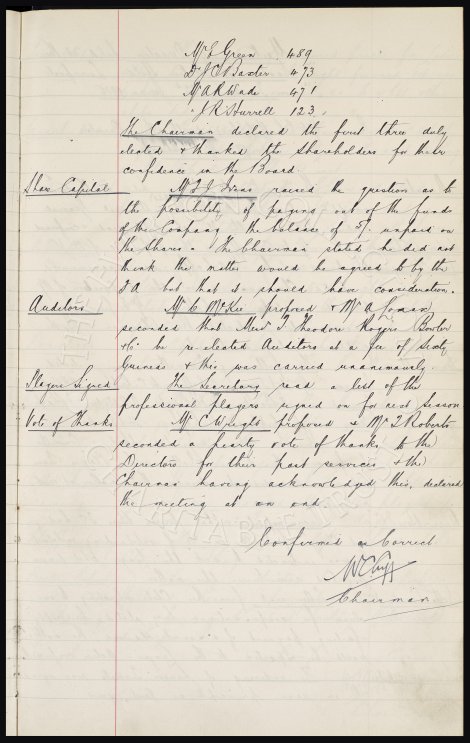 Mr E Green 489
Dr J C Baxter 473
Mr A R Wade 471
" J R Hurrell 123
The Chairman declared the first three duly
elected & thanked the Shareholders for their
confidence in the Board.
Share Capital Mr J J raised the question as to
the possibility of paying out of the funds
of the Company the balance of 5/- unpaid on
the Shares. The Chairman stated he did not
think the matter would be agreed to by the
F.A. but that it should have consideration.
Auditors Mr C McKee proposed & Mr A
seconded that Messrs T. Theodore Rogers Bowler
& Co be re-elected Auditors at a fee of Sixty
Guineas & this was carried unanimously.
Players Signed The Secretary read a list of the
professional players signed on for next Season
Vote of Thanks Mr C Wright proposed & Mr L Roberts
seconded a hearty vote of thanks to the
Directors for their past services & the
Chairman having acknowledged this, declared
the meeting at an end
Confirmed as Correct
W C Cuff
Chairman